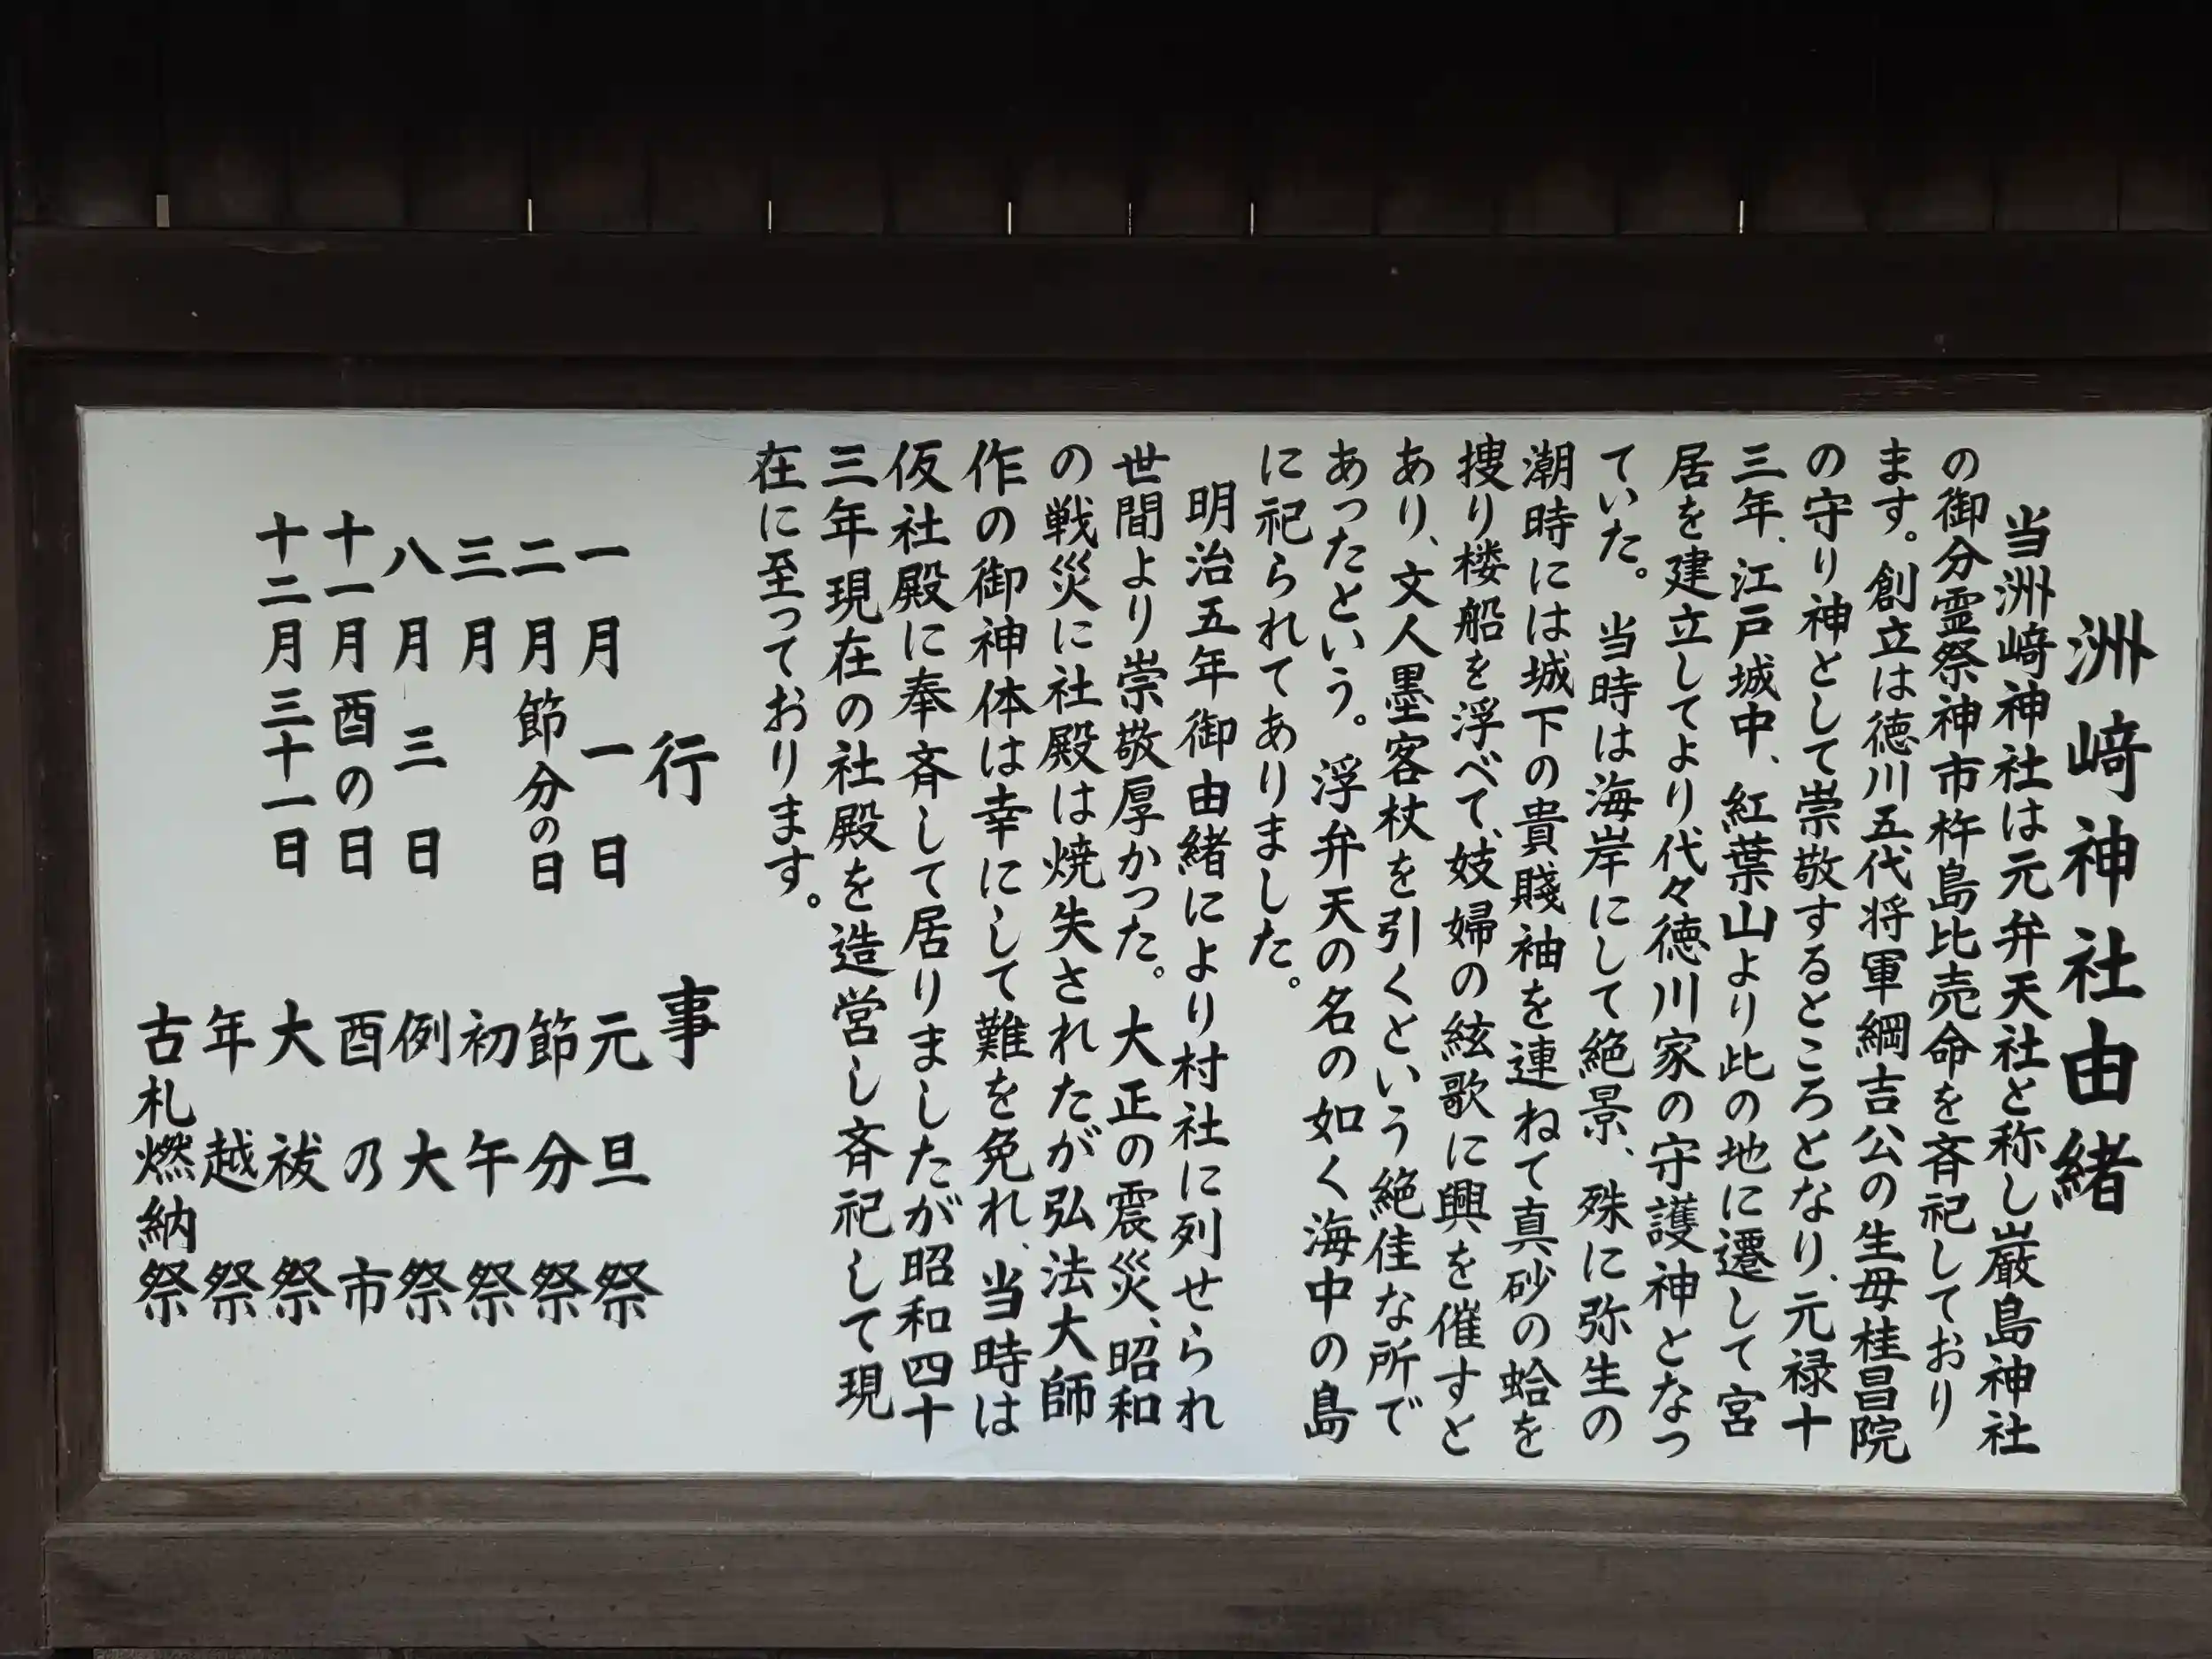 洲﨑神社由緒
当洲﨑神社は元弁天社と称し巌島神社
の御分霊祭神市杵島比売命を斉祀しており
ます。創立は徳川五代将軍綱吉公の生毋桂昌院
の守り神として崇敬するところとなり、元禄十
三年、江戸城中、紅葉山より此の地に遷して宮
居を建立してより代々徳川家の守護神となっ
ていた。当時は海岸にして絶景、殊に弥生の
潮時には城下の貴賤袖を連ねて真砂の蛤を
捜り楼船を浮べて、妓婦の絃歌に興を催すと
あり、文人墨客杖を引くという絶佳な所で
あったという。浮弁天の名の如く海中の島
に祀られてありました。
明治五年御由緒により村社に列せられ
世間より崇敬厚かった。大正の震災、昭和
の戦災に社殿は焼失されたが弘法大師
作の御神体は幸にして難を免れ、当時は
仮社殿に奉斉して居りましたが昭和四十
三年現在の社殿を造営し斉祀して現
在に至っております。
行事
一月一日 元旦祭
二月節分の日 節分祭
三月 初午祭
八月三日 例大祭
十一月酉の日 酉の市
十二月三十一日 大祓祭
年越祭
古札燃納祭